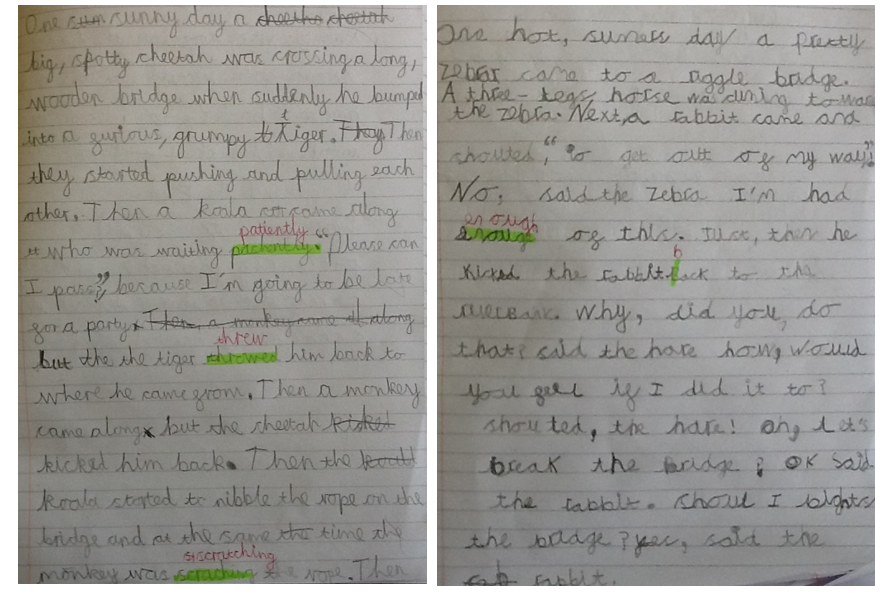 One sunny day a cheetho cheetah
big, spotty cheetah was crossing a long,
wooden bridge when suddenly he bumped
into a gurious, grumpy tiger. They Then
they started pushing and pulling each
other. Then a koala came along
patiently
who was waiting pachently. "Please can
I pass?" because I'm going to be late
for a party. Then a monkey came along
threw
but the the tiger throwed him back to
where he came from. Then a monkey
came along but the cheetah kicked
kicked him back. Then the koall
koala started to nibble the rope on the
bridge and at the same the time the
scratching
monkey was scraching the rope. Then
One hot, sunness day a pretty
zebar came to a giggle bridge.
A three-legs horse was cuning towar
the zebra. Next, a rabbit came and
shouted, "go get outt of my way!"
No, said the zebra I'm had
enough
enouge of this. Just, then he
b
kicked the rabbit back to the
riverbank. Why, did you, do
that? said the hare how, would
you feel if I did it to?
shouted, the hare! oh, Let's
break the bridge? OK said
the rabbit. shoul I bights
the bridge? yes, said the
rab rabbit.